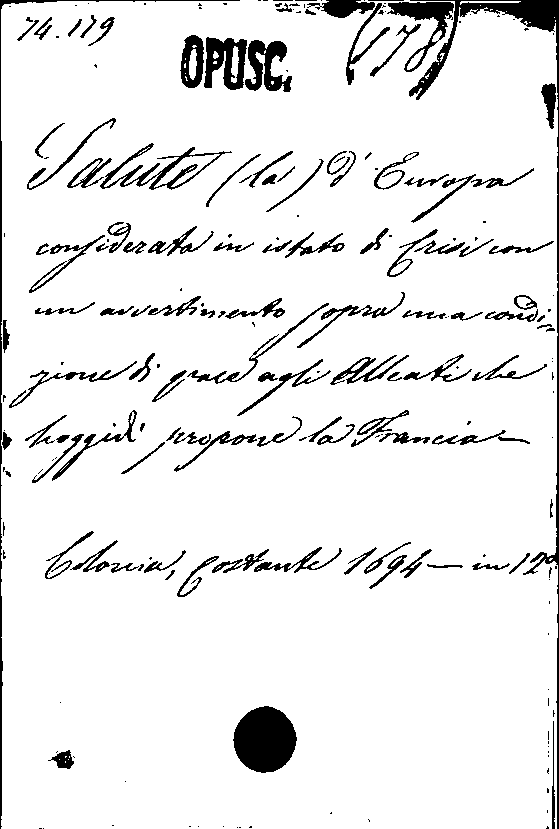 74.179
OPUSC.
(178)
Salute (la) d'Europa
considerata in istato di Crisi con
un avvertimento sopra una condi=
zione di pace agli Alleati che
hoggidì propone la Francia —
Colonia, Costante 1694 — in 12º